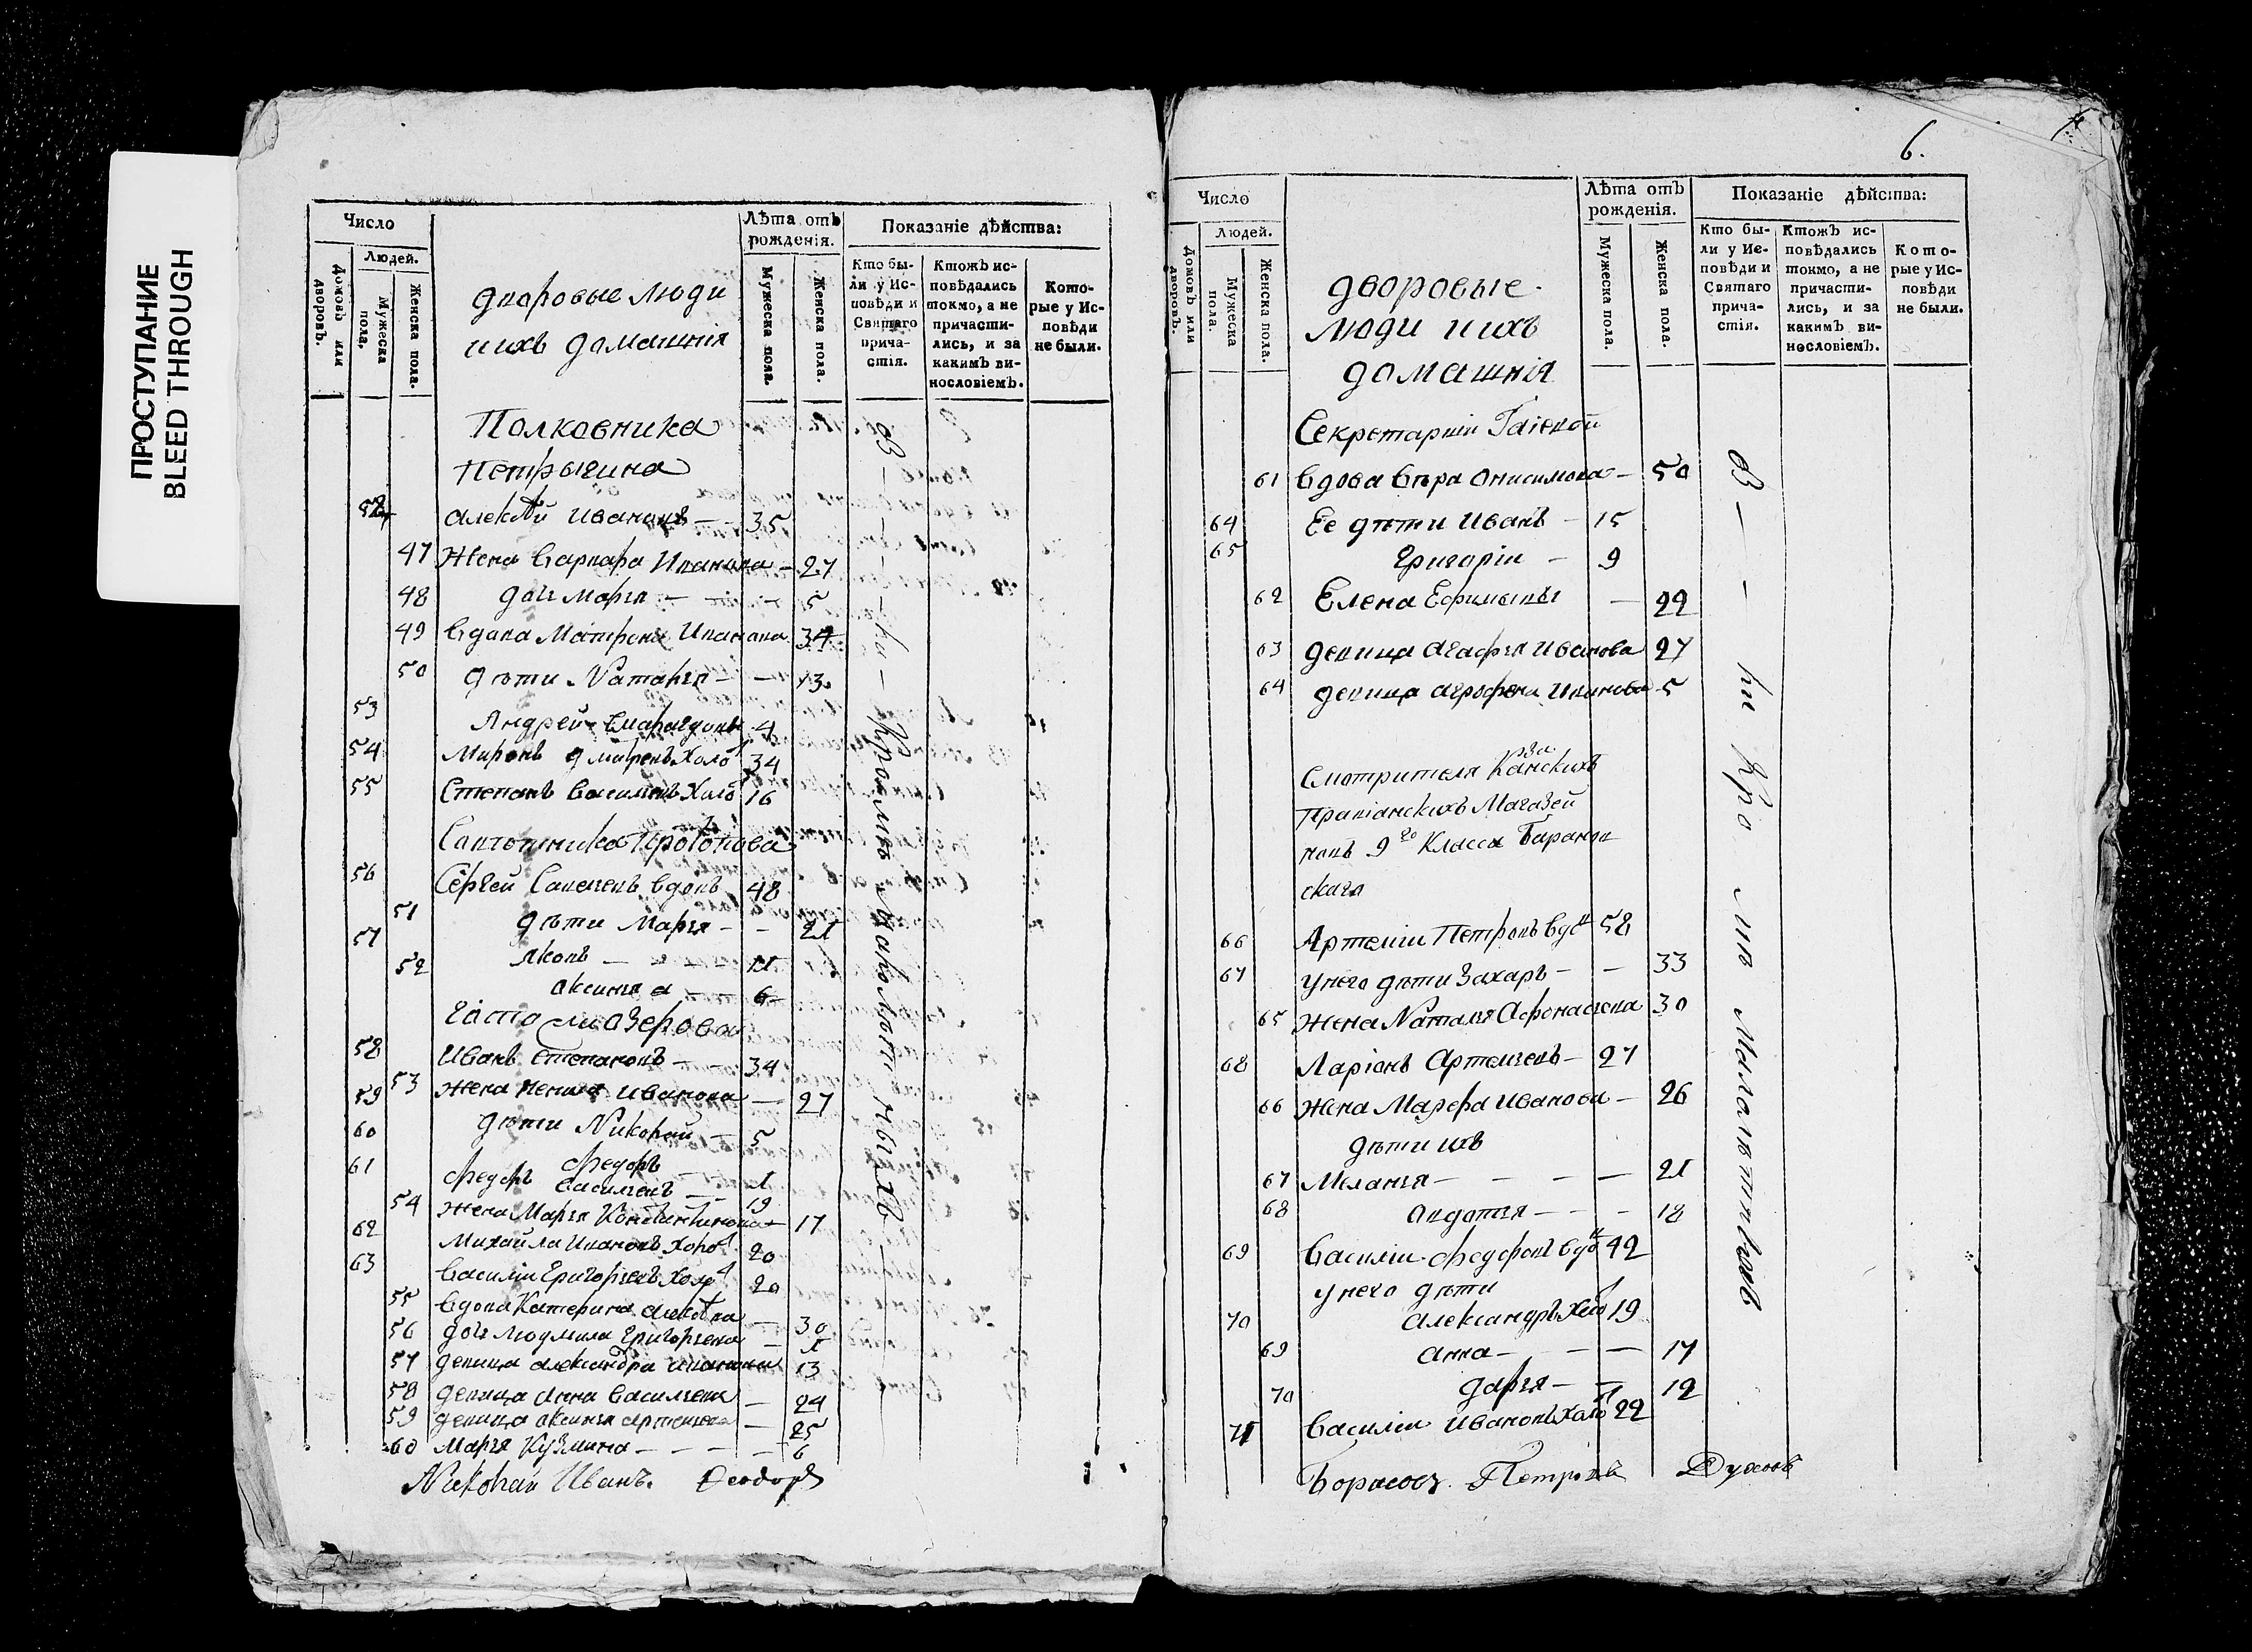 ПРОСТУПАНИЕ
BLEED THROUGH
Число
Людей.
Домовъ или дворовъ.
Мужеска пола.
Женска пола.
дворовые люди
и ихъ домашнія
Лѣта отъ рожденія.
Мужеска пола.
Женска пола.
Показаніе дѣйства:
Кто бы-
ли у Ис-
повѣди и
Святаго
прича-
стія.
Ктожъ ис-
повѣдались
токмо, а не
причасти-
лись, и за
какимъ ви-
нословіемъ.
Кото-
рые у Ис-
повѣди
не были.
Полковника
Петрыгина
52 Алексѣй Ивановъ — 35
47 Жена Варвара Иванова — 27
48 дочь Марья — 5
49 Вдова Матрена Иванова 34
50 дѣти Наталья — 13
53 Андрей 4
54 Миронъ Дмитревъ Холо 34
55 Степанъ Васильевъ Холо 16
56 Сергей Савельевъ вдовъ 48
51 дѣти Марья — 21
57 Яковъ — 11
52 Аксинья — 6
58 Иванъ Степановъ — 34
53 Жена Иванова — 27
59 дѣти Николай — 5
60 Федоръ — 1
61 Федоръ Васильевъ — 19
54 Жена Марья Константинова — 17
62 Михайла Ивановъ Холо 20
63 Василіи Григорьевъ Холо 20
55 Вдова Катерина — 30
56 дочь Людмила Григорьева — 1
57 девица Александра Иванова 13
58 девица Анна Васильева — 24
59 девица Аксинья Артемьева — 25
60 Марья Кузмина — 6
Николай Иванъ. Феодоръ
В — — — ра — Кромѣ малолѣтныхъ
6.
Число
Людей.
Домовъ или дворовъ.
Мужеска пола.
Женска пола.
дворовые
люди и ихъ
домашнія
Лѣта отъ
рожденія.
Мужеска пола.
Женска пола.
Показаніе дѣйства:
Кто бы-
ли у Ис-
повѣди и
Святаго
прича-
стія.
Ктожъ ис-
повѣдались
токмо, а не
причасти-
лись, и за
какимъ ви-
нословіемъ.
Кото-
рые у Ис-
повѣди
не были.
Секретарши
61 Вдова Вѣра Онисимова — 50
64 Ее дѣти Иванъ — 15
65 Григоріи — 9
62 Елена — 22
63 девица Агафья Иванова 27
64 девица Агрофена Иванова 5
Смотрителя
Магазей
новъ 9го Класса Баранов
скаго
66 Артеміи Петровъ вдо 58
67 у него дѣти Захаръ — — 33
65 Жена Наталья Афонасьева 30
68 Ларіонъ Артемьевъ — 27
66 Жена Марфа Иванова — 26
дѣти ихъ
67 Меланья — — — — 21
68 Авдотья — — — 18
69 Василіи Федоровъ вдо 42
у него дѣти
70 Александръ Холо 19
69 Анна — — — 17
70 Дарья — — 12
71 Василіи Ивановъ Холо 22
Борисовъ Петровъ Духовъ
В — — — ли Кромѣ Малолѣтныхъ